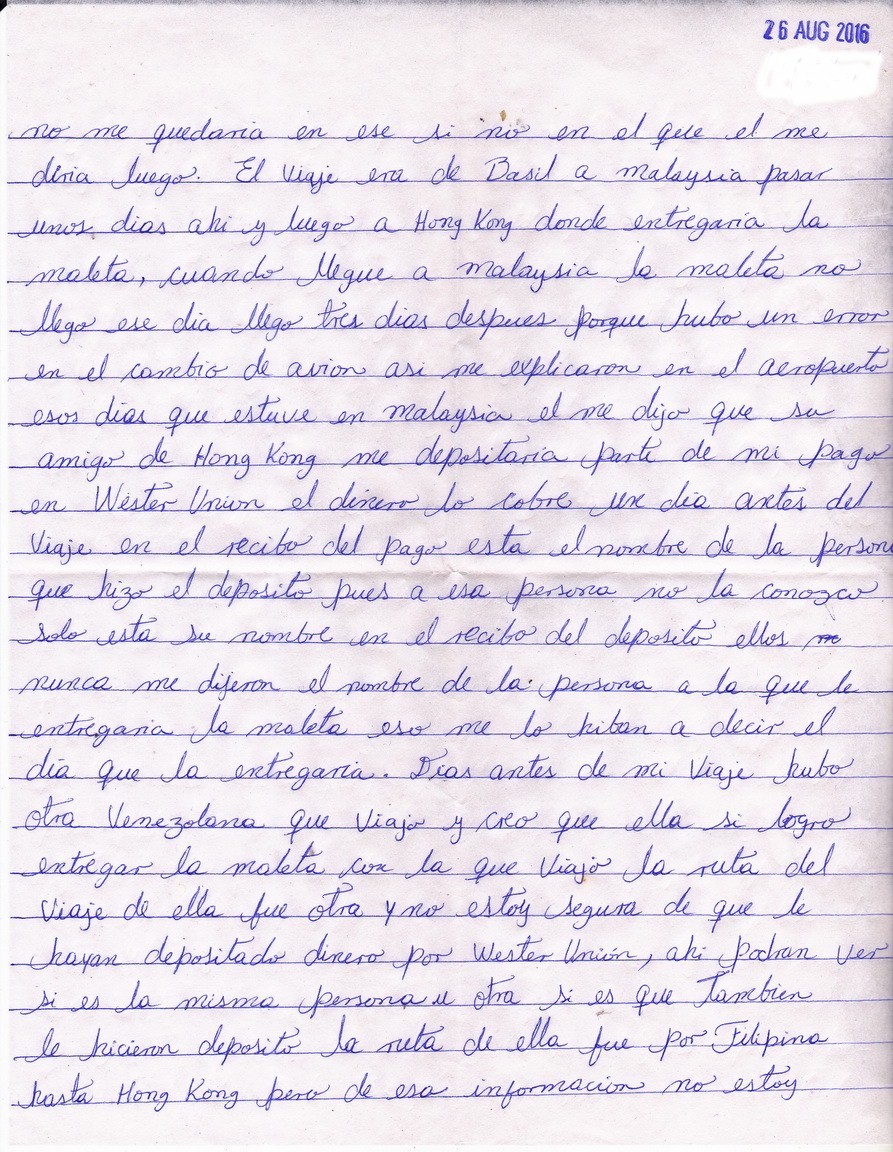 26 AUG 2016
no me quedaria en ese si no en el que el me
diria luego. El Viaje era de Basil a malaysia pasar
unos dias ahi y luego a Hong Kong donde entregaria la
maleta, cuando llegue a malaysia la maleta no
llego ese dia llego tres dias despues porque hubo un error
en el cambio de avion asi me explicaron en el aeropuerto
esos dias que estuve en malaysia el me dijo que su
amigo de Hong Kong me depositaria parte de mi pago
en Wester Union el dinero lo cobre un dia antes del
Viaje en el recibo del pago esta el nombre de la person
que hizo el deposito pues a esa persona no la conozco
solo esta su nombre en el recibo del deposito ellos
nunca me dijeron el nombre de la persona a la que le
entregaria la maleta eso me lo hiban a decir el
dia que la entregaria. Dias antes de mi Viaje hubo
otra Venezolana que Viajo y creo que ella si logro
entregar la maleta con la que Viajo la ruta del
Viaje de ella fue otra y no estoy segura de que le
hayan depositado dinero por Wester Unión, ahi podran ver
si es la misma persona u otra si es que Tambien
le hicieron deposito la ruta de ella fue por Filipina
hasta Hong Kong pero de esa informacion no estoy